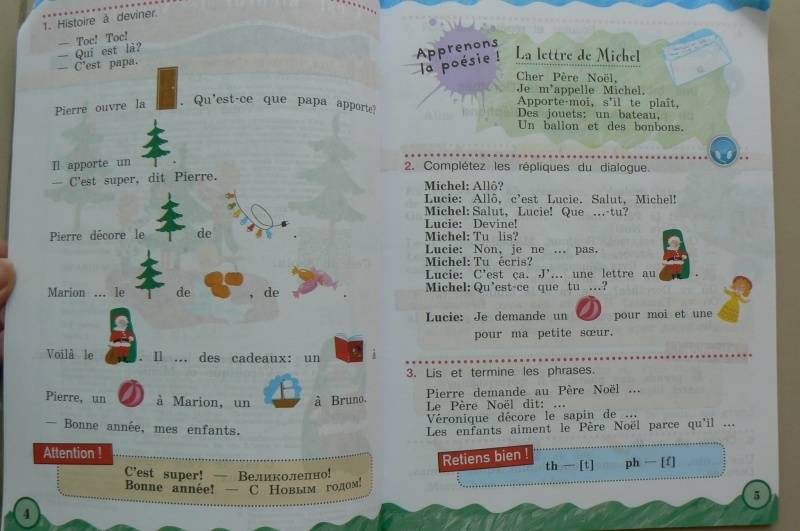 1. Histoire à deviner.
— Toc! Toc!
— Qui est là?
— C'est papa.
Pierre ouvre la . Qu'est-ce que papa apporte?
Il apporte un .
— C'est super, dit Pierre.
Pierre décore le de .
Marion ... le de , de .
Voilà le . Il ... des cadeaux: un à
Pierre, un à Marion, un à Bruno.
— Bonne année, mes enfants.
Attention !
C'est super! — Великолепно!
Bonne année! — С Новым годом!
4
Apprenons
la poésie !
La lettre de Michel
Cher Père Noël,
Je m'appelle Michel.
Apporte-moi, s'il te plaît,
Des jouets; un bateau,
Un ballon et des bonbons.
2. Complétez les répliques du dialogue.
Michel: Allô?
Lucie: Allô, c'est Lucie. Salut, Michel!
Michel: Salut, Lucie! Que ...-tu?
Lucie: Devine!
Michel: Tu lis?
Lucie: Non, je ne ... pas.
Michel: Tu écris?
Lucie: C'est ça. J'... une lettre au .
Michel: Qu'est-ce que tu ...?
Lucie: Je demande un pour moi et une
pour ma petite sœur.
3. Lis et termine les phrases.
Pierre demande au Père Noël ...
Le Père Noël dit: ...
Véronique décore le sapin de ...
Les enfants aiment le Père Noël parce qu'il ...
Retiens bien !
th — [t] ph — [f]
5